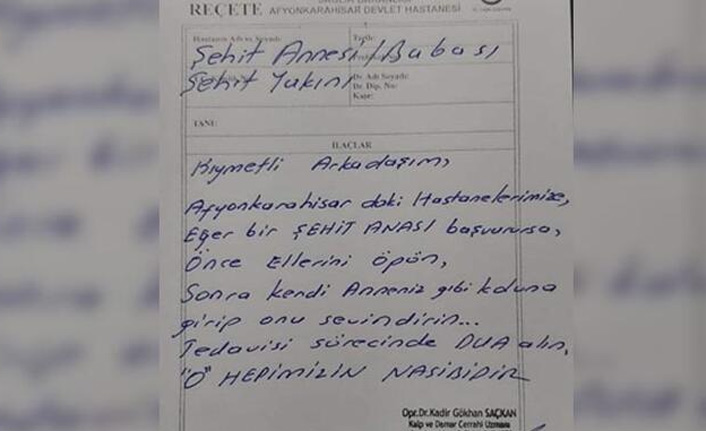 REÇETE
AFYONKARAHİSAR DEVLET HASTANESİ
Hastanın Adı ve Soyadı:
Tarih:
Şehit Annesi/Babası
Şehit Yakını
Dr. Adı Soyadı:
Dr. Dip. No:
Kaşe:
TANI:
İLAÇLAR
Kıymetli Arkadaşım,
Afyonkarahisar daki Hastanelerimize,
Eğer bir ŞEHİT ANASI başvurursa,
Önce Ellerini öpün,
Sonra kendi Anneniz gibi koluna
girip onu sevindirin...
Tedavisi sürecinde DUA alın,
"O" HEPİMİZİN NASİBİDİR
Opr.Dr.Kadir Gökhan SAÇKAN
Kalp ve Damar Cerrahi Uzmanı